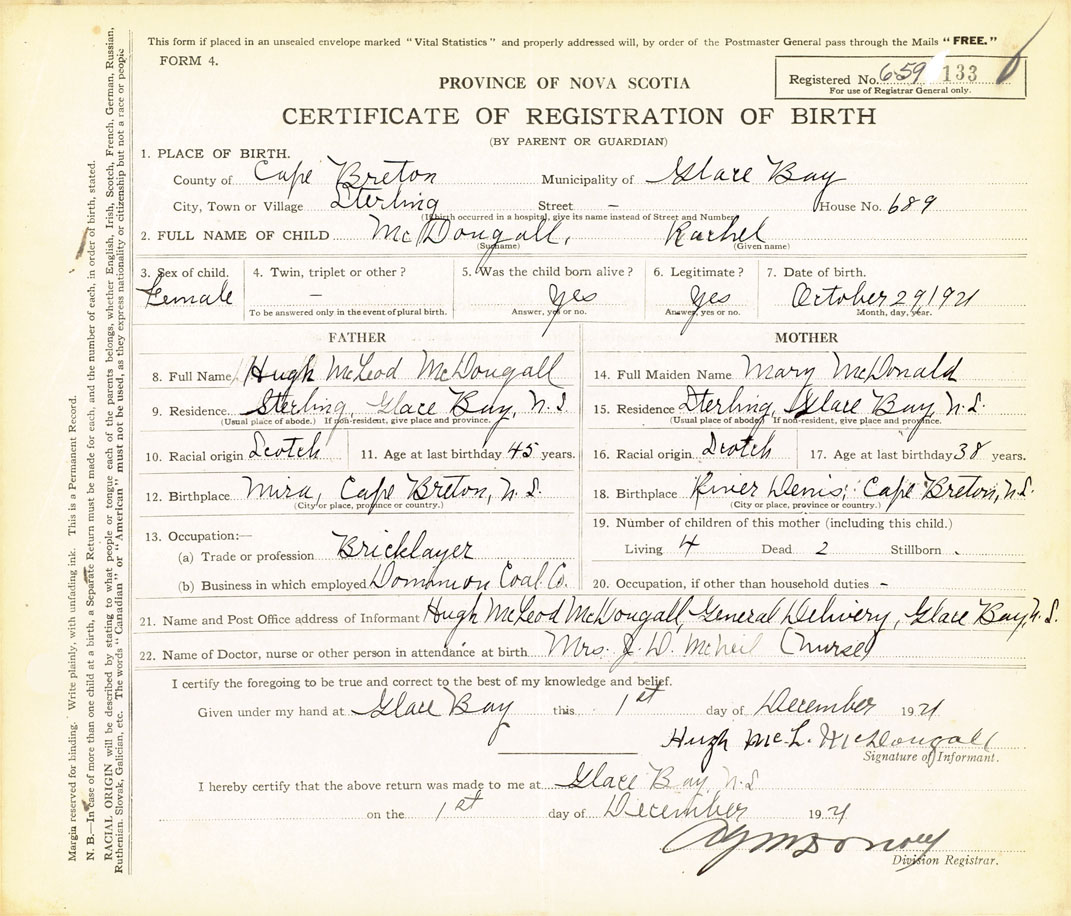 This form if placed in an unsealed envelope marked "Vital Statistics" and properly addressed will, by order of the Postmaster General pass through the Mails "FREE."
FORM 4.
Registered No. 659 133
For use of Registrar General only.
PROVINCE OF NOVA SCOTIA
CERTIFICATE OF REGISTRATION OF BIRTH
(BY PARENT OR GUARDIAN)
1. PLACE OF BIRTH.
County of Cape Breton Municipality of Glace Bay
City, Town or Village Sterling Street - House No. 689
(If birth occurred in a hospital, give its name instead of Street and Number
2. FULL NAME OF CHILD McDougall, Rachel
(Surname) (Given name)
3. Sex of child. 4. Twin, triplet or other? 5. Was the child born alive? 6. Legitimate? 7. Date of birth.
Female - Yes Yes October 29 1921
To be answered only in the event of plural birth. Answer, yes or no. Answer, yes or no. Month, day, year.
FATHER
8. Full Name Hugh McLeod McDougall
9. Residence Sterling, Glace Bay, N.S.
(Usual place of abode.) If non-resident, give place and province.
10. Racial origin Scotch 11. Age at last birthday 45 years.
12. Birthplace Mira, Cape Breton, N.S.
(City or place, province or country.)
13. Occupation:—
(a) Trade or profession Bricklayer
(b) Business in which employed Dominion Coal Co.
MOTHER
14. Full Maiden Name Mary McDonald
15. Residence Sterling, Glace Bay, N.S.
(Usual place of abode.) If non-resident, give place and province.
16. Racial origin Scotch 17. Age at last birthday 38 years.
18. Birthplace River Denis, Cape Breton, N.S.
(City or place, province or country.)
19. Number of children of this mother (including this child.)
Living 4 Dead 2 Stillborn .
20. Occupation, if other than household duties -
21. Name and Post Office address of Informant Hugh McLeod McDougall, General Delivery, Glace Bay, N.S.
22. Name of Doctor, nurse or other person in attendance at birth Mrs. J. D. McNeil (nurse)
I certify the foregoing to be true and correct to the best of my knowledge and belief.
Given under my hand at Glace Bay this 1st day of December 1921
Hugh McL. McDougall
Signature of Informant.
I hereby certify that the above return was made to me at Glace Bay, N.S
on the 1st day of December 1921
Division Registrar.
Margin reserved for binding. Write plainly, with unfading ink. This is a Permanent Record.
N. B.—In case of more than one child at a birth, a Separate Return must be made for each, and the number of each, in order of birth, stated.
RACIAL ORIGIN will be described by stating to what people or tongue each of the parents belongs, whether English, Irish, Scotch, French, German, Russian,
Ruthenian, Slovak, Galician, etc. The words "Canadian" or "American" must not be used, as they express nationality or citizenship but not a race or people